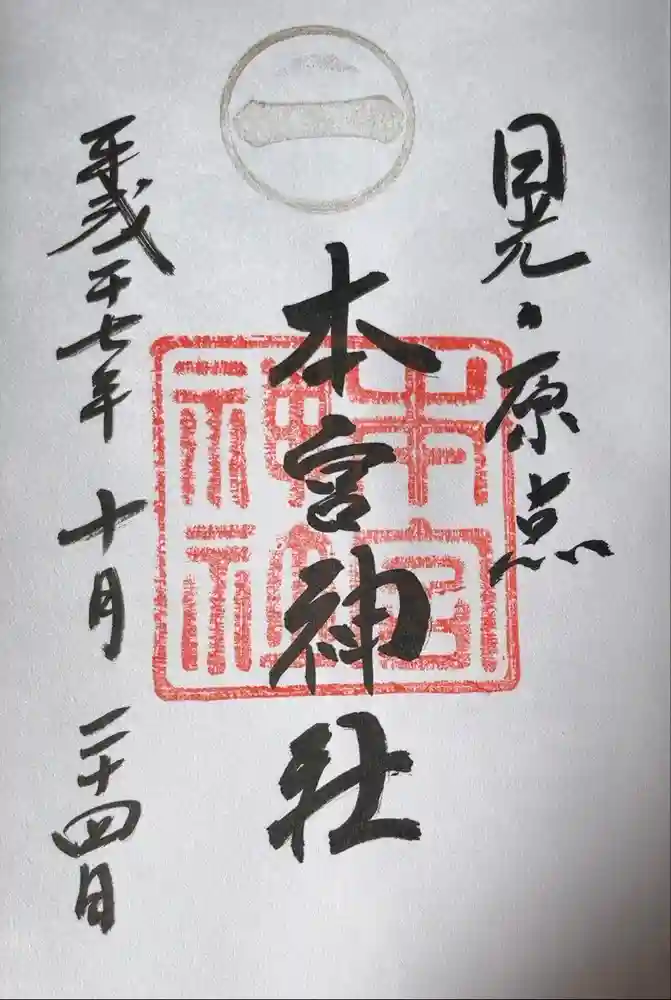 一
日光の原点
本宮神社
本宮
神社
平成二十七年 十月 二十四日